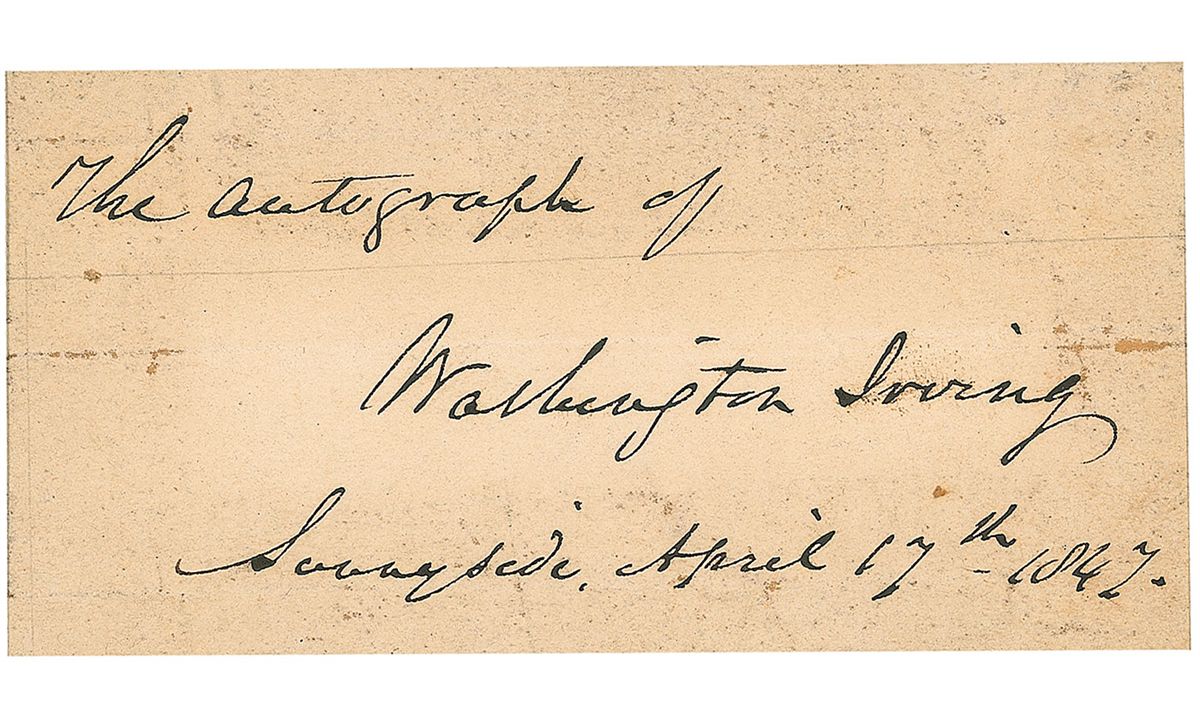 The autograph of
Washington Irving
Sunnyside, April 17th 1847.